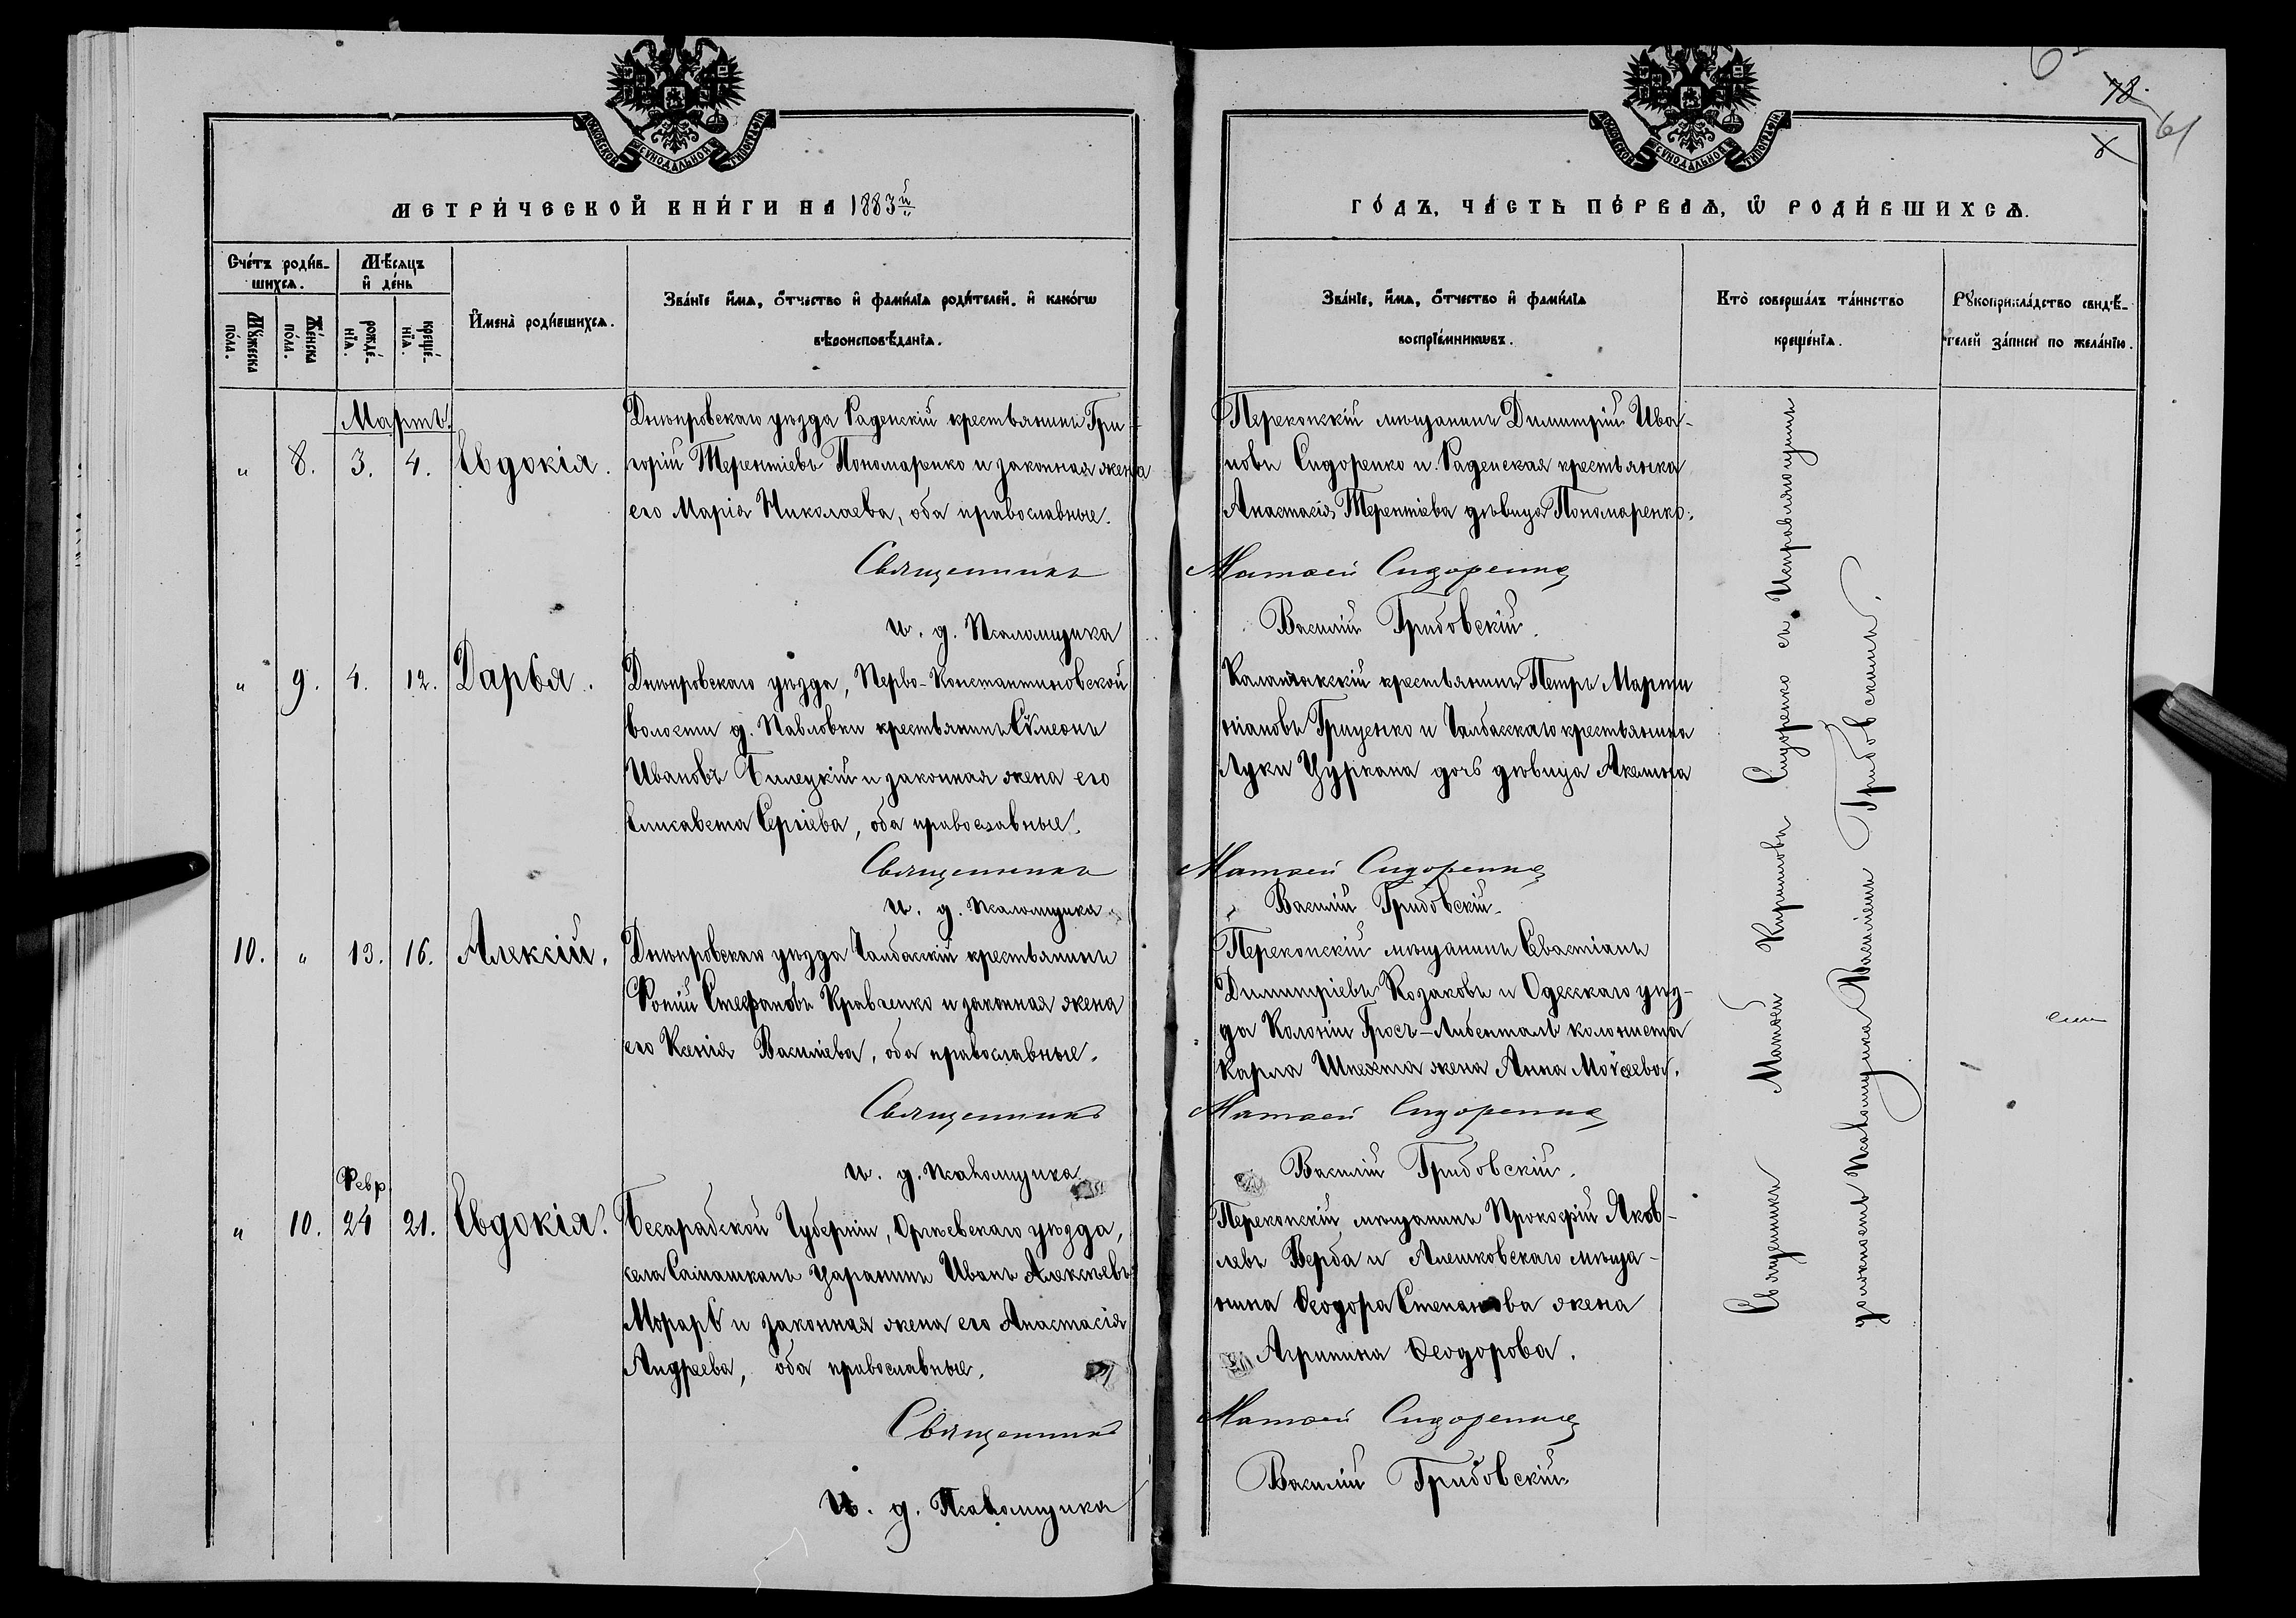 МОСКОВСКОЙ СУНОДАЛЬНОЙ ТИПОГРАФІИ
МЕТРИ́ЧЕСКОЙ КНИ́ГИ НА 1883й
Сче́тъ роди́в-
шихся.
Мѣ́сяцъ
и҆ де́нь
Мꙋ́жеска
по́ла.
Же́нска
по́ла.
рожде́-
нїѧ.
креще́-
нїѧ.
И҆мена̀ роди́вшихсѧ.
Зва́нїе и҆́мѧ, ѻ҆́тчество и҆ фами́лїѧ роди́телей, и҆ како́гѡ
вѣроисповѣ́данїѧ.
Мартъ.
" 8. 3. 4. Евдокія.
Днѣпровскаго уѣзда Раденскій крестьянинъ Гри-
горій Терентіевъ Пономаренко и законная жена
его Марія Николаева, оба православные.
Священникъ
И. д. Псаломщика
" 9. 4. 12. Дарья.
Днѣпровскаго уѣзда, Перво-Константиновской
волости д. Павловки крестьянинъ Сѵмеонъ
Ивановъ Билецкій и законная жена его
Елисавета Сергіева, оба православные.
Священникъ
И. д. Псаломщика
10. " 13. 16. Алексій.
Днѣпровскаго уѣзда Чалбасскій крестьянинъ
Фотій Стефановъ Кравченко и законная жена
его Ксенія Василіева, оба православные.
Священникъ
И. д. Псаломщика
Февр.
" 10. 24 21. Евдокія.
Бессарабской Губерніи, Оргѣевскаго уѣзда,
села царанинъ Иванъ Алексѣевъ
Морарь и законная жена его Анастасія
Андреева, оба православные.
Священникъ
И. д. Псаломщика
78.
61
МОСКОВСКОЙ СУНОДАЛЬНОЙ ТИПОГРАФІИ
ГО́ДЪ, ЧА́СТЬ ПЕ́РВАѦ, Ѡ҆ РОДИ́ВШИХСѦ.
Зва́нїе, и҆́мѧ, ѻ҆́тчество и҆ фами́лїѧ
воспрїе́мникѡвъ.
Кто̀ соверша́лъ та́инство
креще́нїѧ.
Рꙋкоприкла́дство свидѣ́-
телей за́писи по жела́нїю.
Перекопскій мѣщанинъ Димитрій Ива-
новъ Сидоренко и Раденская крестьянка
Анастасія Терентіева дѣвица Пономаренко.
Матѳей Сидоренко
Василій Грибовскій.
Каланчакскій крестьянинъ Петръ Марти
ніановъ Гриценко и Чалбасскаго крестьянина
Луки Цуркана дочь дѣвица Акелина
Матѳей Сидоренко
Василій Грибовскій.
Перекопскій мѣщанинъ Севастіанъ
Димитріевъ Козаковъ и Одесскаго уѣз-
да Колоніи Гросъ-Либенталь колониста
Карла Шпехта жена Анна Моѵсеева.
Матѳей Сидоренко
Василій Грибовскій.
Перекопскій мѣщанинъ Прокофій Яков-
левъ Верба и Алешковскаго мѣща-
нина Ѳеодора Степанова жена
Агрипина Ѳеодорова.
Матѳей Сидоренко
Василій Грибовскій
Священникъ Матѳей Кирилловъ Сидоренко съ Исправляющимъ
должность Псаломщика Василіемъ Грибовскимъ.